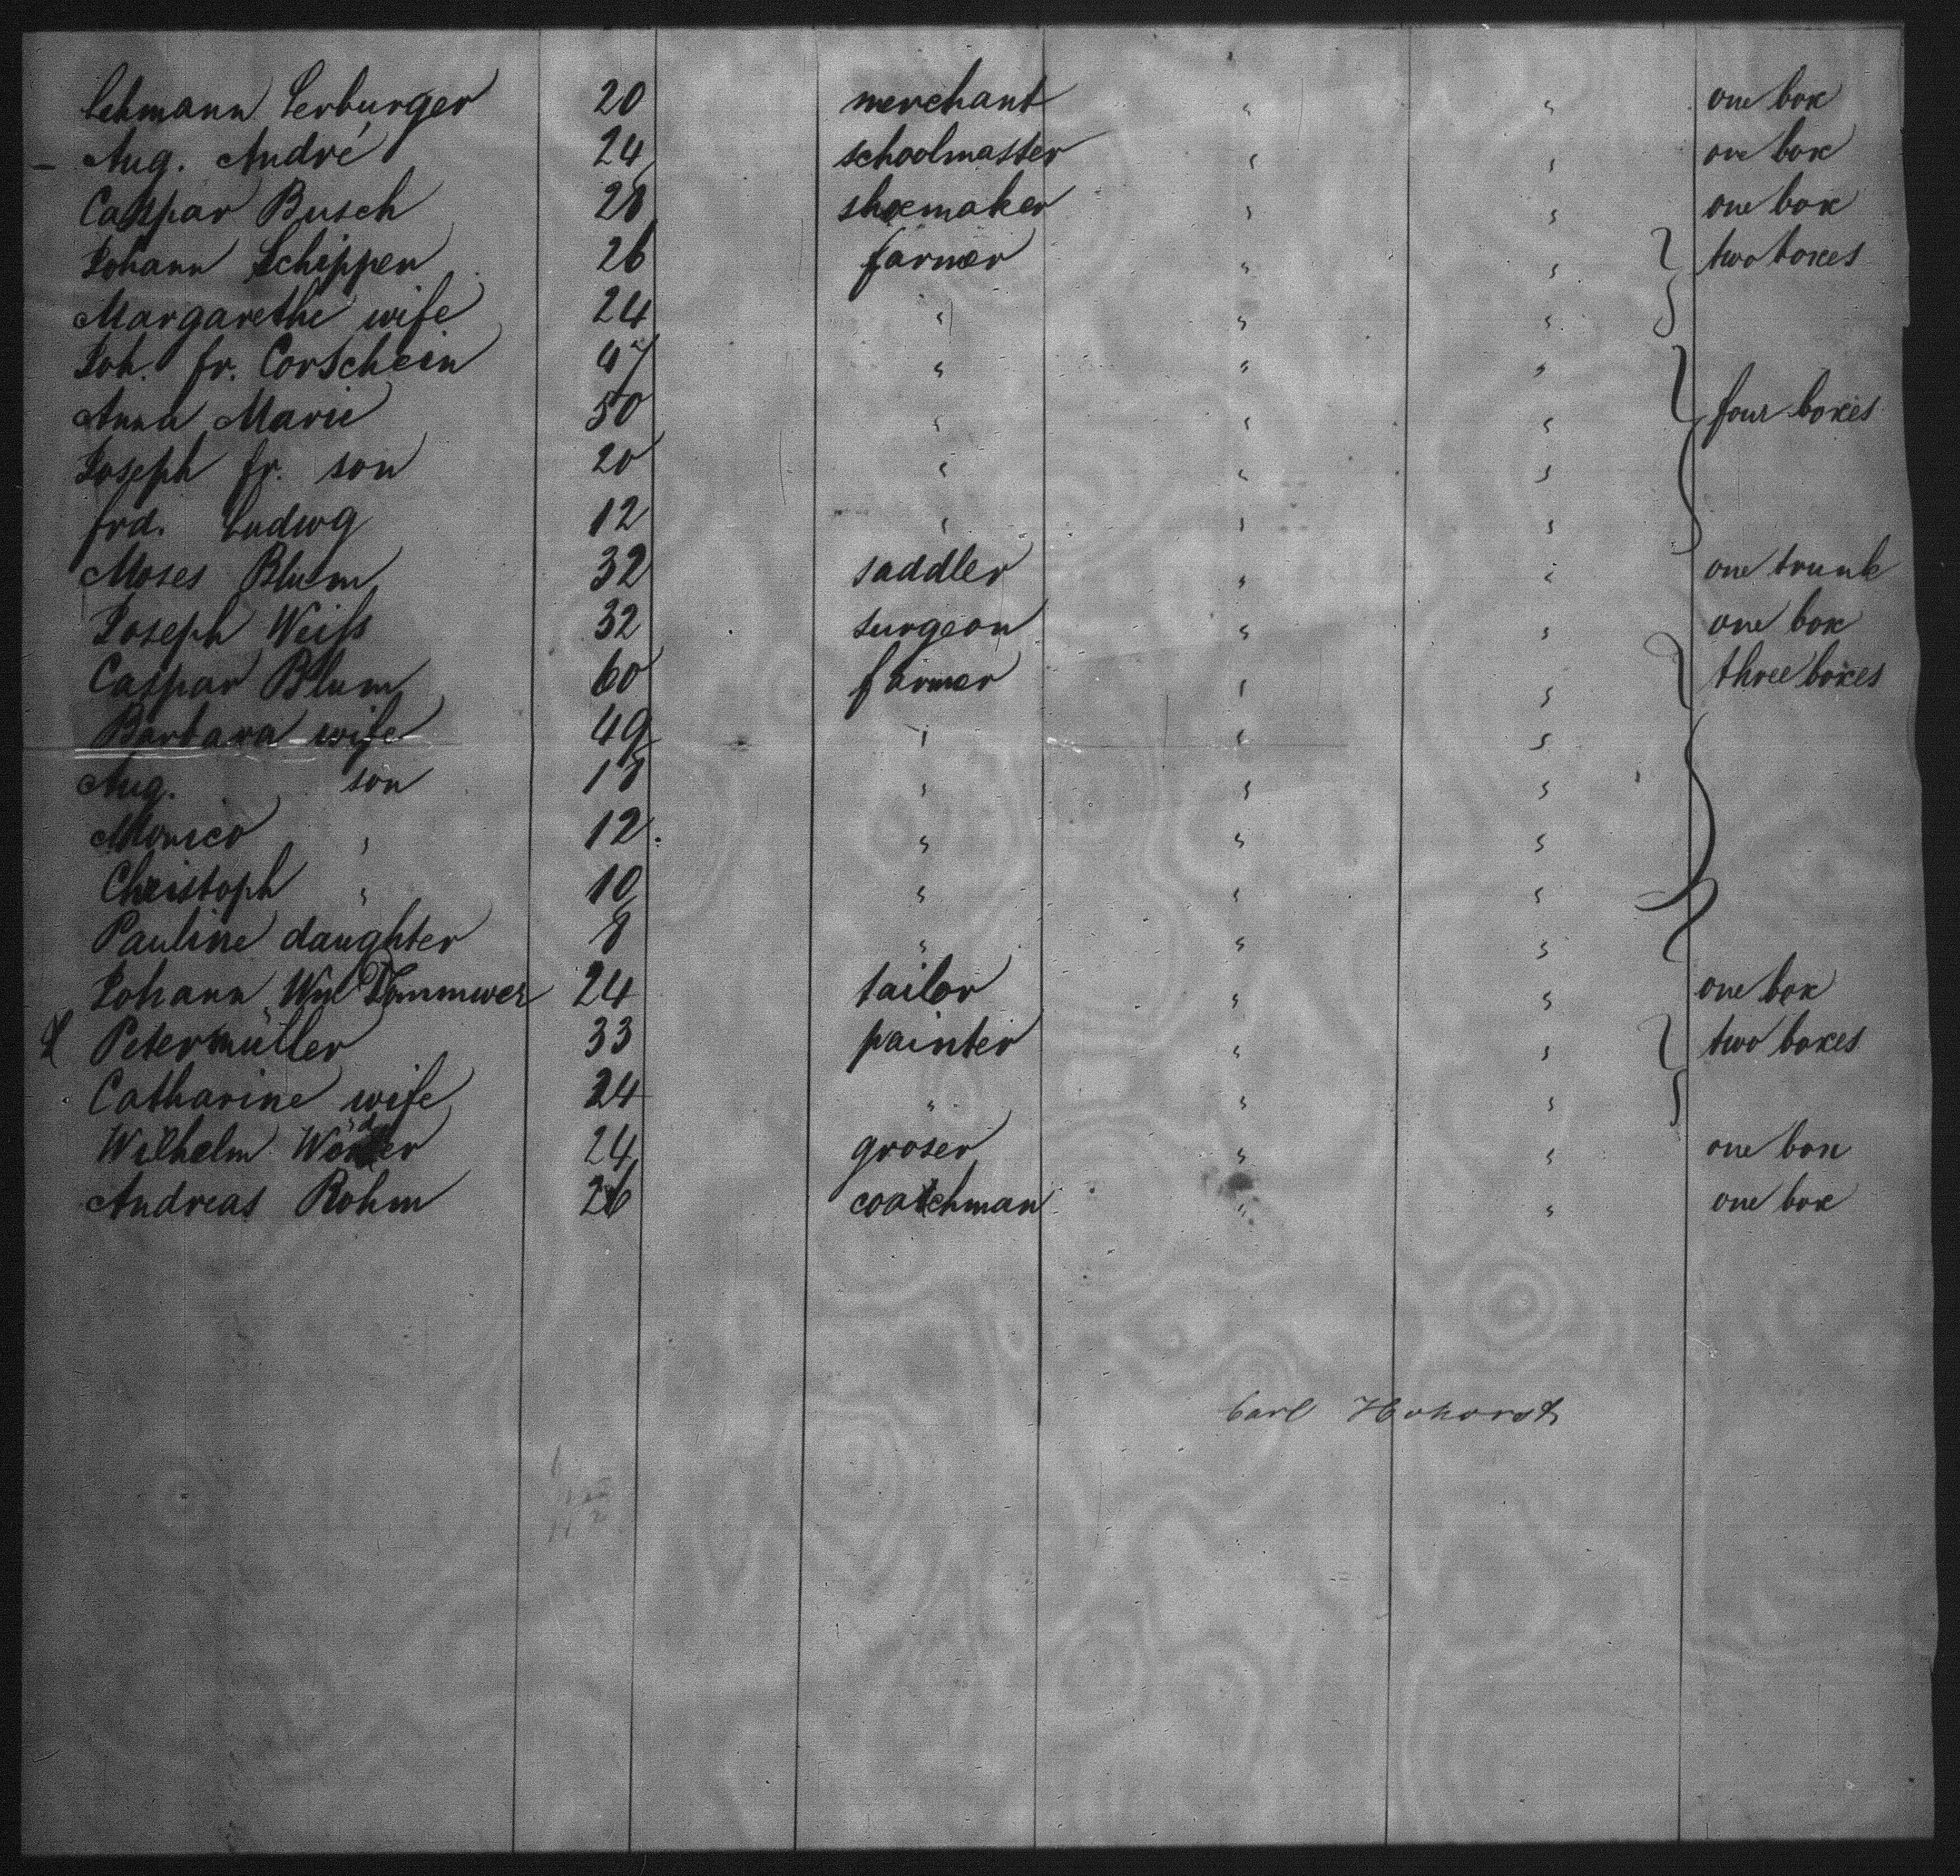 Lehmann Lerburger 20 merchant " " one box
Aug. André 24 schoolmaster " " one box
Caspar Busch 28 shoemaker " " one box
Johann Schippen 26 farmer " " two boxes
Margarethe wife 24 " " "
Joh. fr. Corschein 47 " " "
Anna Marie 50 " " " four boxes
Joseph fr. son 20 " " "
frd. Ludwg 12 " " "
Moses Blum 32 saddler " " one trunk
Joseph Weiß 32 surgeon " " one box
Caspar Blum 60 farmer " " three boxes
Barbara wife 49 " " "
Aug. son 18 " " "
Monico " 12 " " "
Christoph " 10 " " "
Pauline daughter 8 " " "
Johann Wil 24 tailor " " one box
Peter Müller 33 painter " " two boxes
Catharine wife 24 " " "
Wilhelm 24 groser " " one box
Andreas Rohm 26 coatchman " " one box
Carl Hohorst